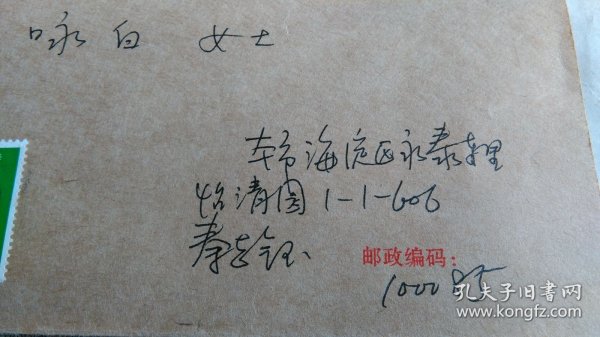 咏白 女士
本市海淀区永泰东里
怡清园1-1-606
秦志钰
邮政编码:
100085
孔夫子旧书网
www.kongfz.com